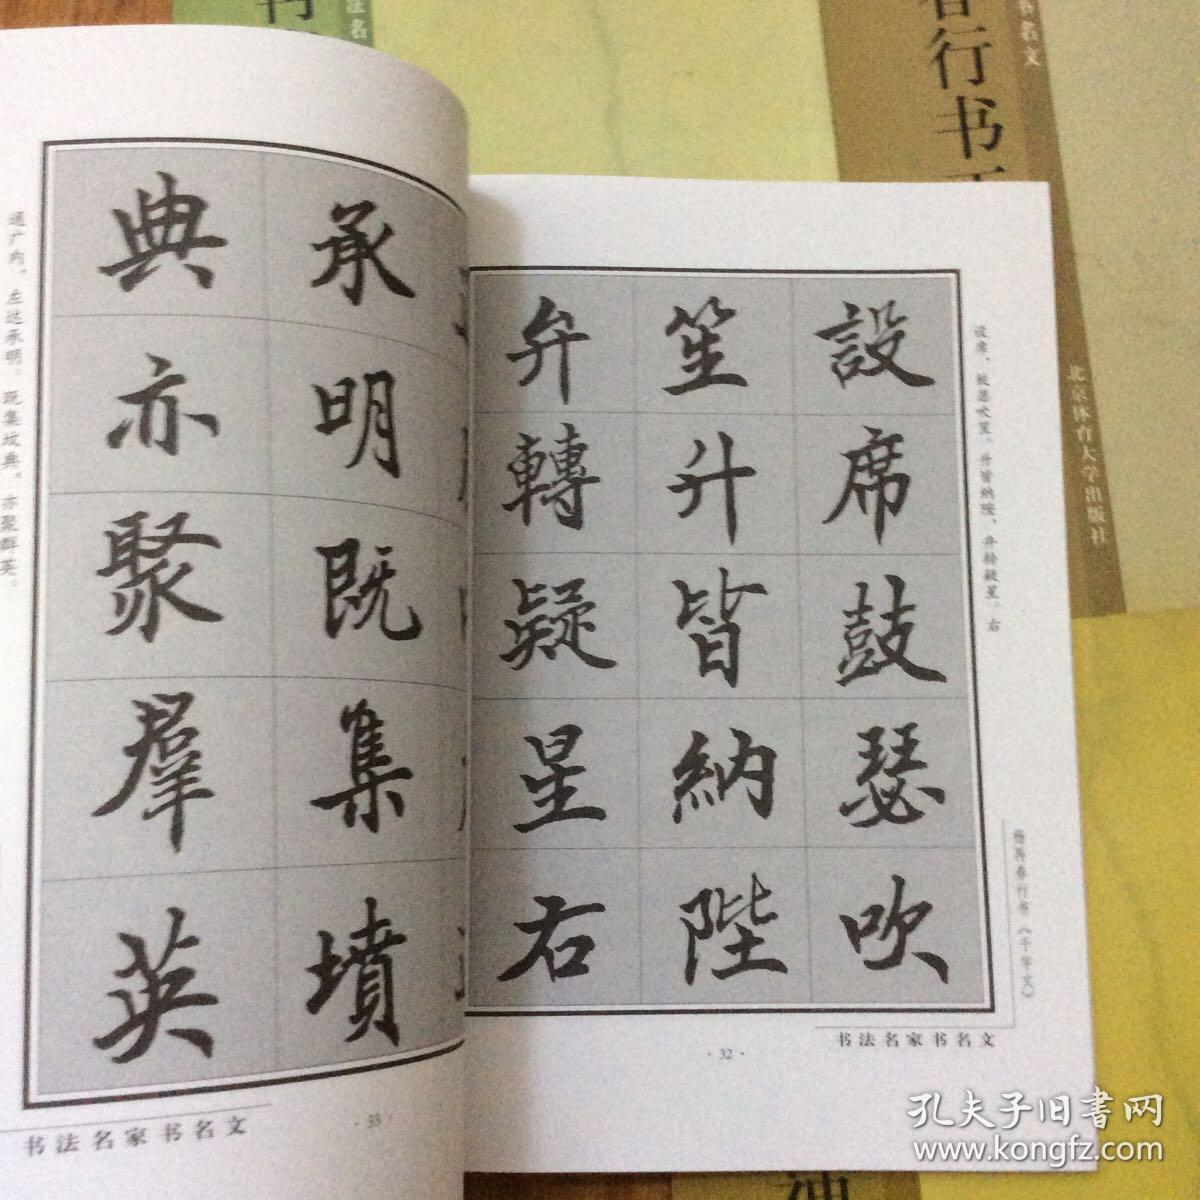 设席，鼓瑟吹笙。升皆纳陛，弁转疑星。右
設席鼓瑟吹
笙升皆納陛
弁轉疑星右
杨再春行书《千字文》
书法名家书名文
·32·
承明既集墳
典亦聚羣英
通广内，左达承明。既集坟典，亦聚群英。
·33·
书法名家书名文
法名
行书
书名文
北京体育大学出版社
神
孔夫子旧書网
www.kongfz.com